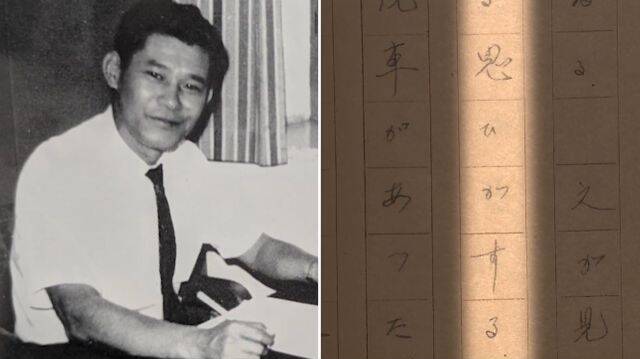 る。　えが見
思ひがする
車があつた